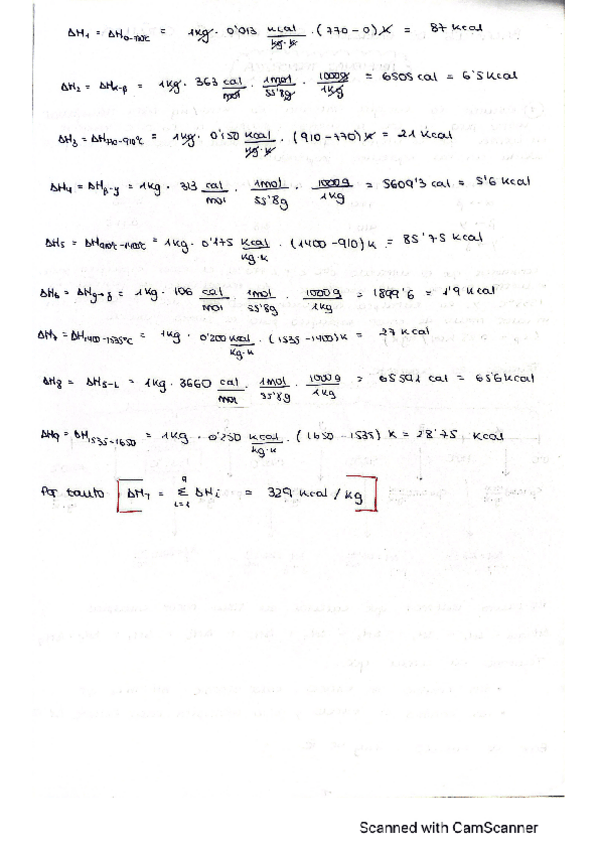 ΔH₁ = ΔH₀₋₇₇₀°C = 1kg · 0'013 kcal/kg·K · (770-0)K = 87 kcal
ΔH₂ = ΔHα-β = 1kg · 363 cal/mol · 1mol/55'8g · 1000g/1kg = 6505 cal = 6'5 kcal
ΔH₃ = ΔH₇₇₀₋₉₁₀°C = 1kg · 0'150 kcal/kg·K · (910-770)K = 21 kcal
ΔH₄ = ΔHβ-γ = 1kg · 313 cal/mol · 1mol/55'8g · 1000g/1kg = 5609'3 cal = 5'6 kcal
ΔH₅ = ΔH₉₁₀°C₋₁₄₀₀°C = 1kg · 0'175 kcal/kg·K · (1400-910)K = 85'75 kcal
ΔH₆ = ΔHγ→δ = 1kg · 106 cal/mol · 1mol/55'8g · 1000g/1kg = 1899'6 = 1'9 kcal
ΔH₇ = ΔH₁₄₀₀₋₁₅₃₅°C = 1kg · 0'200 kcal/kg·K · (1535-1400)K = 27 kcal
ΔH₈ = ΔHS-L = 1kg · 3660 cal/mol · 1mol/55'8g · 1000g/1kg = 65591 cal = 65'6 kcal
ΔH₉ = ΔH₁₅₃₅₋₁₆₅₀ = 1kg · 0'250 kcal/kg·K · (1650-1535)K = 28'75 kcal
Por tanto ΔH_T = Σ(i=1→9) ΔHi = 329 kcal/kg
Scanned with CamScanner